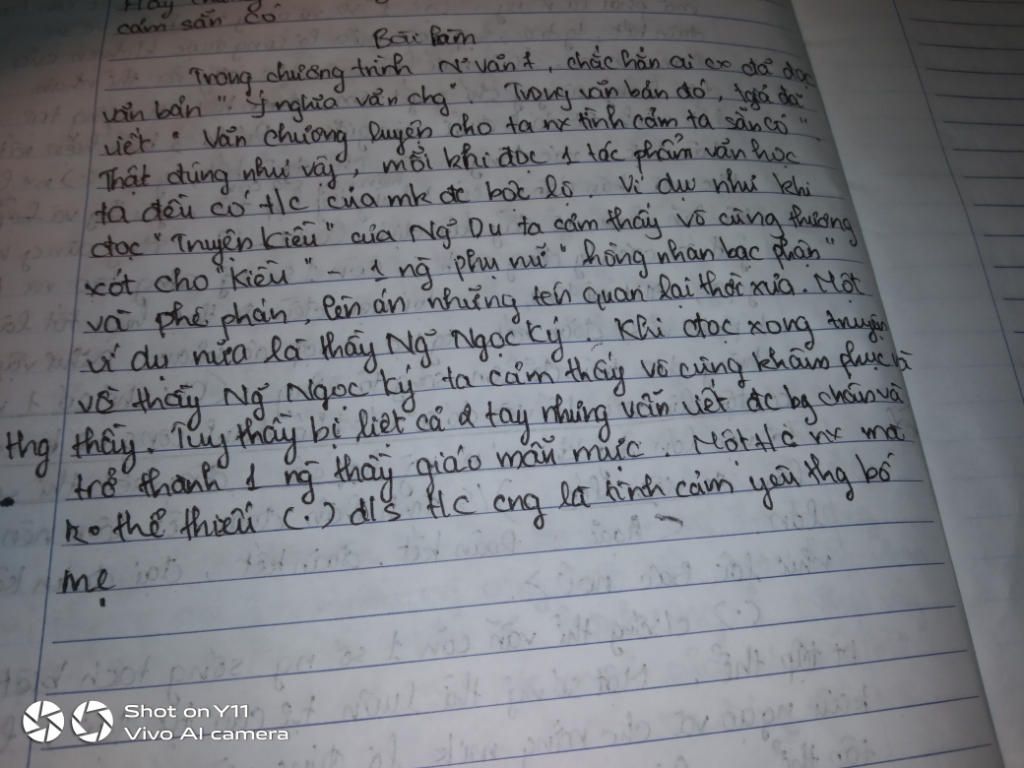 cảm sẵn có
Bài làm
Trong chương trình Nº văn 7, chắc hẳn ai cx đã đọc
văn bản " Ý nghĩa văn chg". Trong văn bản đó, tgả đã
viết " Văn chương luyện cho ta nx tình cảm ta sẵn có"
Thật đúng như vậy, mỗi khi đọc 1 tác phẩm văn học
ta đều có t/c của mk đc bộc lộ. Ví dụ như khi
đọc "Truyện Kiều" của Ng~ Du ta cảm thấy vô cùng thương
xót cho "Kiều" - 1 ng` phụ nữ "hồng nhan bạc phận"
và phê phán, lên án những tên quan lại thời xưa. Một
ví dụ nữa là thầy Ng~ Ngọc Ký. Khi đọc xong truyện
về thầy Ng~ Ngọc Ký ta cảm thấy vô cùng khâm phục và
thg thầy. Tuy thầy bị liệt cả 2 tay nhưng vẫn viết đc bg chân và
trở thành 1 ng` thầy giáo mẫu mực. Một t/c nx mà
ko thể thiếu (.) đ/s t/c cng là tình cảm yêu thg bố
mẹ
Shot on Y11
Vivo AI camera